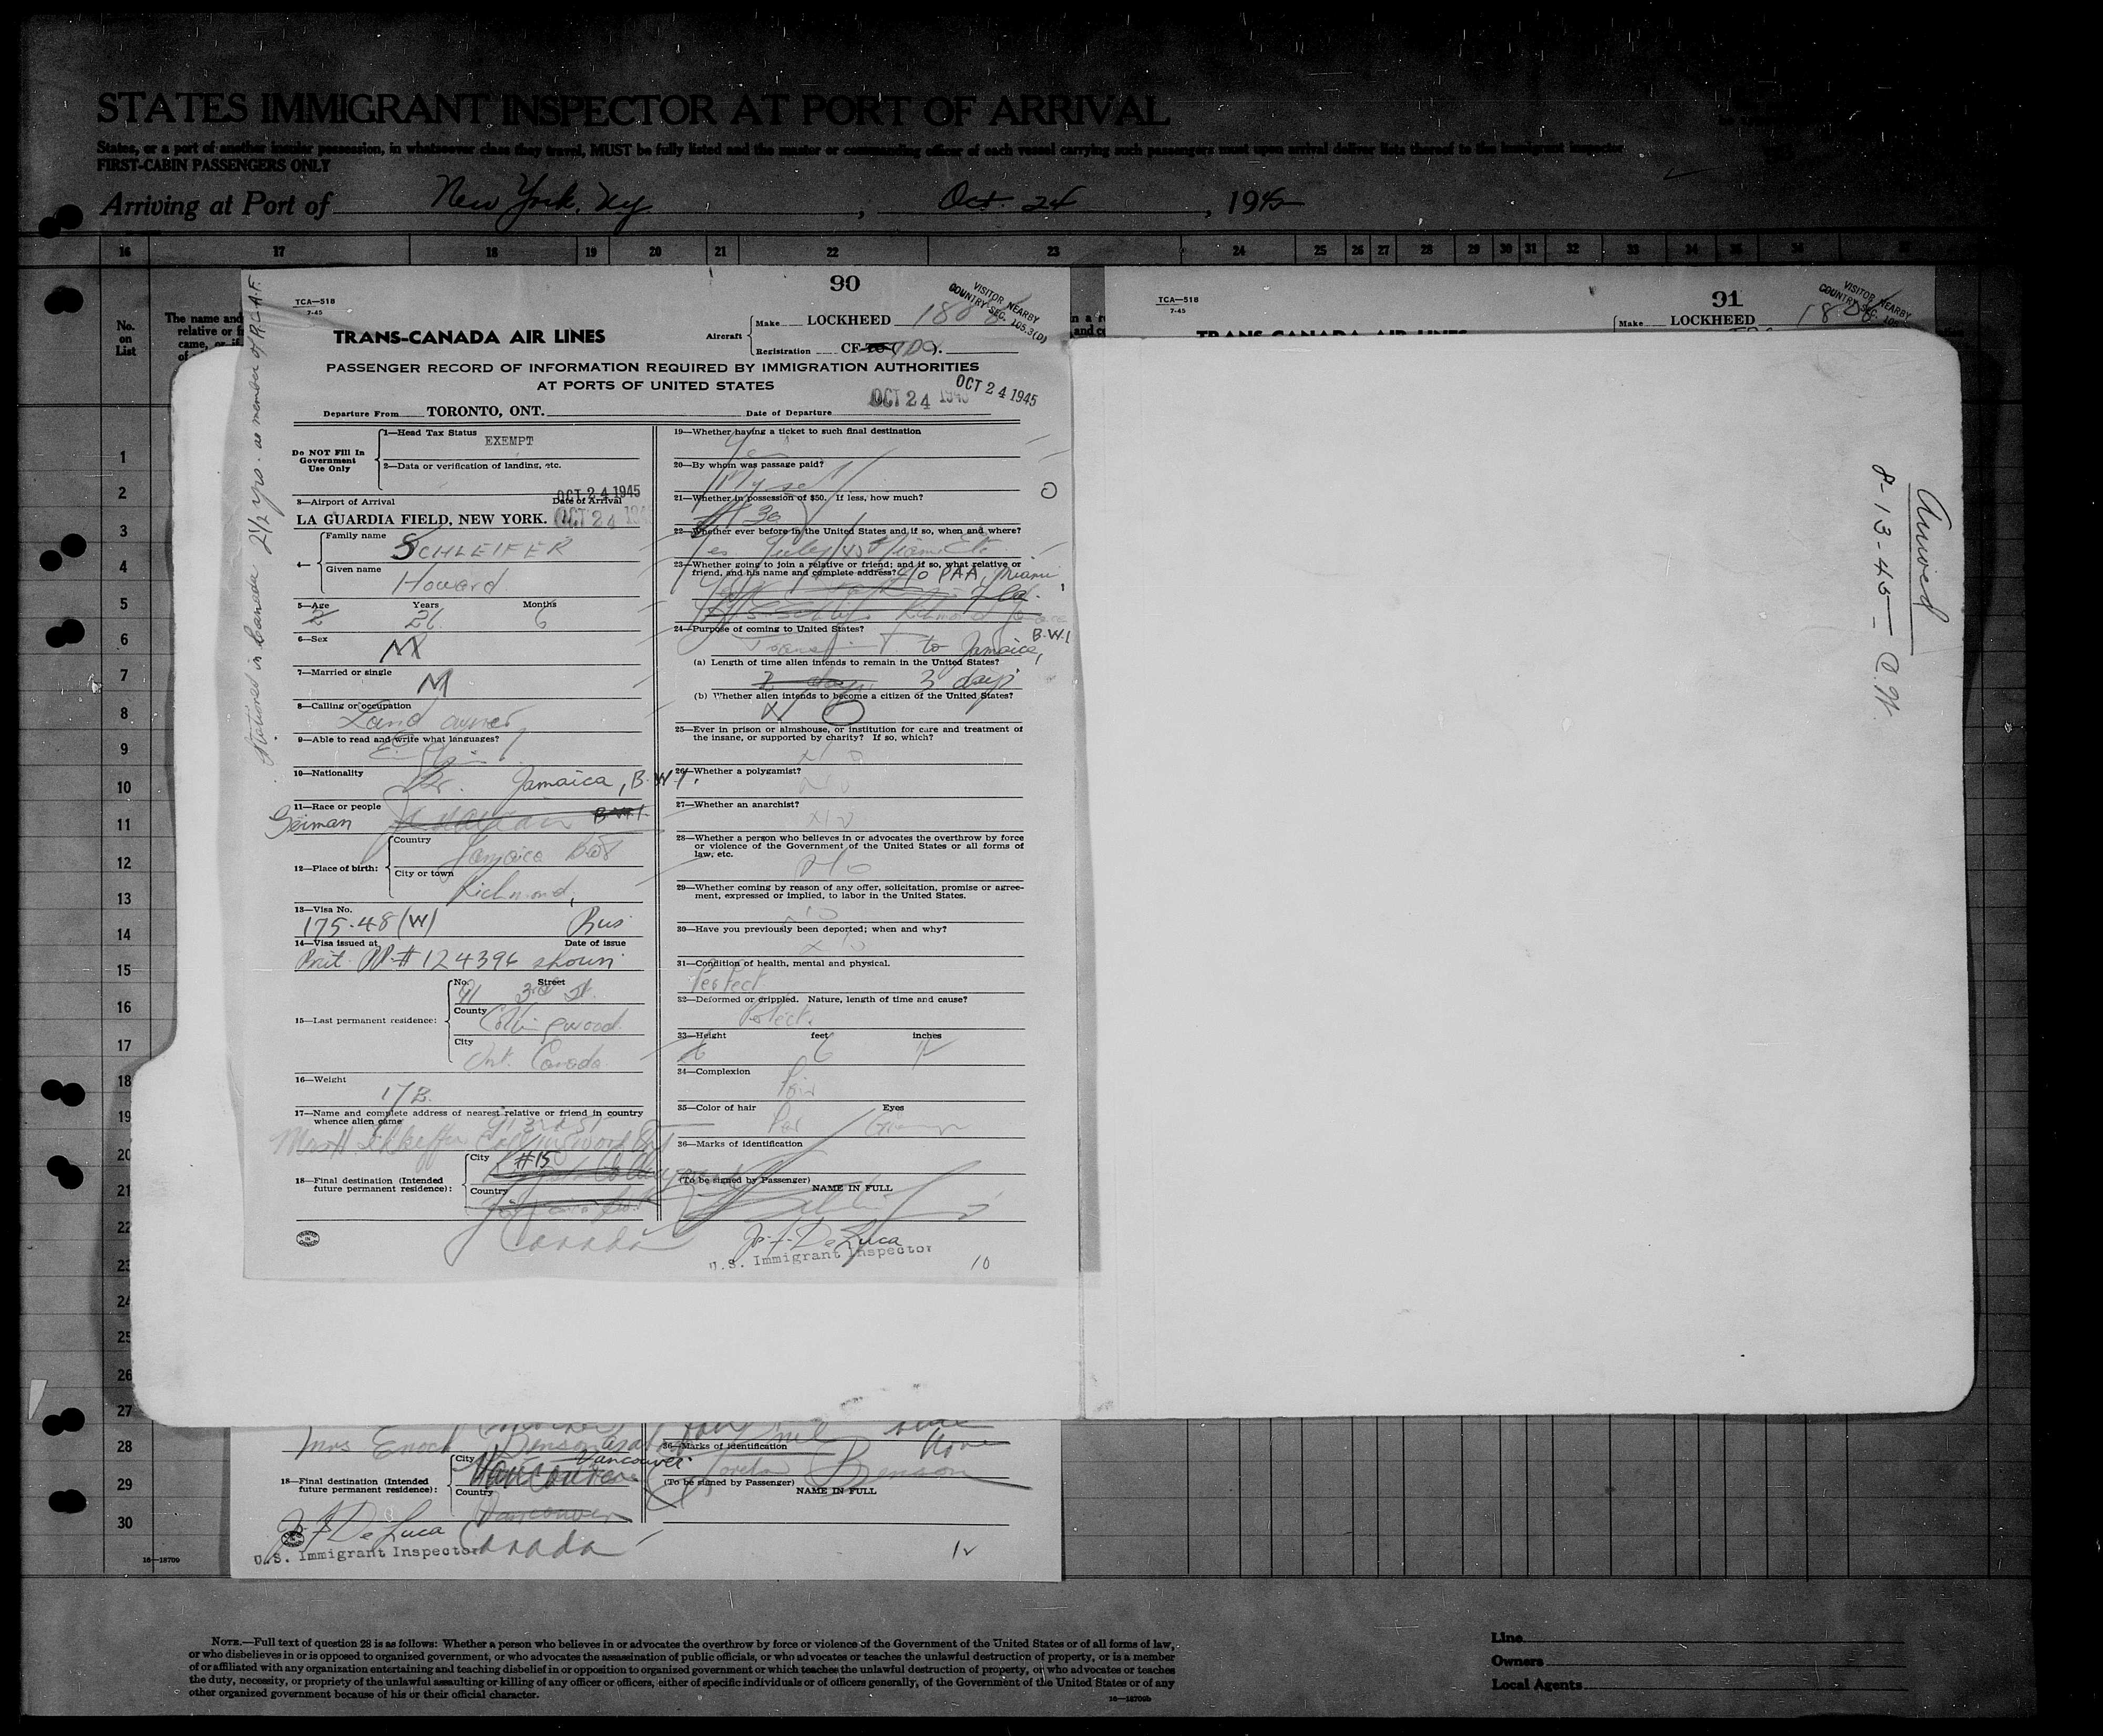 STATES IMMIGRANT INSPECTOR AT PORT OF ARRIVAL
States, or a port of another insular possession, in whatsoever class they travel, MUST be fully listed and the master or commanding officer of each vessel carrying such passengers must upon arrival deliver lists thereof to the immigrant inspector
FIRST-CABIN PASSENGERS ONLY
Arriving at Port of New York, Ny, Oct. 24, 1945
16 17 18 19 20 21 22 23 24 25 26 27 28 29 30 31 32 33 34 35 36
No. on List
The name and
relative or
came, or if
of
1
2
3
4
5
6
7
8
9
10
11
12
13
14
15
16
17
18
19
20
21
22
23
24
25
26
27
28
29
30
Stationed in Canada 2 1/2 yrs. as member of R.C.A.F.
TCA—518
7-45
90
VISITOR NEARBY
COUNTRY-SEC. 105.3(D)
TRANS-CANADA AIR LINES
Aircraft
Make LOCKHEED 1808
Registration CF-
PASSENGER RECORD OF INFORMATION REQUIRED BY IMMIGRATION AUTHORITIES
AT PORTS OF UNITED STATES
OCT 24 1945
Departure From TORONTO, ONT. Date of Departure OCT 24
Do NOT Fill In
Government
Use Only
1—Head Tax Status
EXEMPT
2—Data or verification of landing, etc.
3—Airport of Arrival Date of Arrival
OCT 24 1945
LA GUARDIA FIELD, NEW YORK. OCT 24
4—
Family name
SCHLEIFER
Given name
Howard
5—Age Years Months
26 6
6—Sex
M
7—Married or single
M
8—Calling or occupation
Land owner
9—Able to read and write what languages?
10—Nationality
Br. Jamaica, B.W.I.
11—Race or people
German B.W.I.
12—Place of birth:
Country
Jamaica BWI
City or town
Richmond,
13—Visa No.
175.48(W) Bus
14—Visa issued at Date of issue
Brit. PP.# 124396 shown
15—Last permanent residence:
No. Street
91 3rd St.
County
Collingwood
City
Ont. Canada
16—Weight
17—Name and complete address of nearest relative or friend in country
whence alien came
18—Final destination (Intended
future permanent residence):
City
#15
Country
Canada
19—Whether having a ticket to such final destination
Yes
20—By whom was passage paid?
Myself
21—Whether in possession of $50. If less, how much?
22—Whether ever before in the United States and if so, when and where?
Yes July/45 Miami Etc.
23—Whether going to join a relative or friend; and if so, what relative or
friend, and his name and complete address? c/o PAA, Miami
Fla.
24—Purpose of coming to United States?
B.W.I
Transit to Jamaica,
(a) Length of time alien intends to remain in the United States?
2 days 3 days
(b) Whether alien intends to become a citizen of the United States?
NO
25—Ever in prison or almshouse, or institution for care and treatment of
the insane, or supported by charity? If so, which?
No
26—Whether a polygamist?
No
27—Whether an anarchist?
No
28—Whether a person who believes in or advocates the overthrow by force
or violence of the Government of the United States or all forms of
law, etc.
No
29—Whether coming by reason of any offer, solicitation, promise or agree-
ment, expressed or implied, to labor in the United States.
No
30—Have you previously been deported; when and why?
No
31—Condition of health, mental and physical.
Perfect
32—Deformed or crippled. Nature, length of time and cause?
Perfect.
33—Height feet inches
6
34—Complexion
Fair
35—Color of hair Eyes
Fair Green
36—Marks of identification
(To be signed by Passenger)
NAME IN FULL
J. F. DeLuca
U.S. Immigrant Inspector
10
TCA—518
7-45
91
VISITOR NEARBY
COUNTRY-SEC. 105
TRANS-CANADA AIR LINES
Make LOCKHEED 1808
Arrived
8-13-45
Mrs Enoch Benson
36—Marks of identification
None
18—Final destination (Intended
future permanent residence):
City
Vancouver
Vancouver
Country
Vancouver
(To be signed by Passenger)
Benson
NAME IN FULL
J. F. DeLuca
U.S. Immigrant Inspector
Canada
12
16—18709
NOTE.—Full text of question 28 is as follows: Whether a person who believes in or advocates the overthrow by force or violence of the Government of the United States or of all forms of law,
or who disbelieves in or is opposed to organized government, or who advocates the assassination of public officials, or who advocates or teaches the unlawful destruction of property, or is a member
of or affiliated with any organization entertaining and teaching disbelief in or opposition to organized government or which teaches the unlawful destruction of property, or who advocates or teaches
the duty, necessity, or propriety of the unlawful assaulting or killing of any officer or officers, either of specific individuals or of officers generally, of the Government of the United States or of any
other organized government because of his or their official character.
16—18709b
Line
Owners
Local Agents